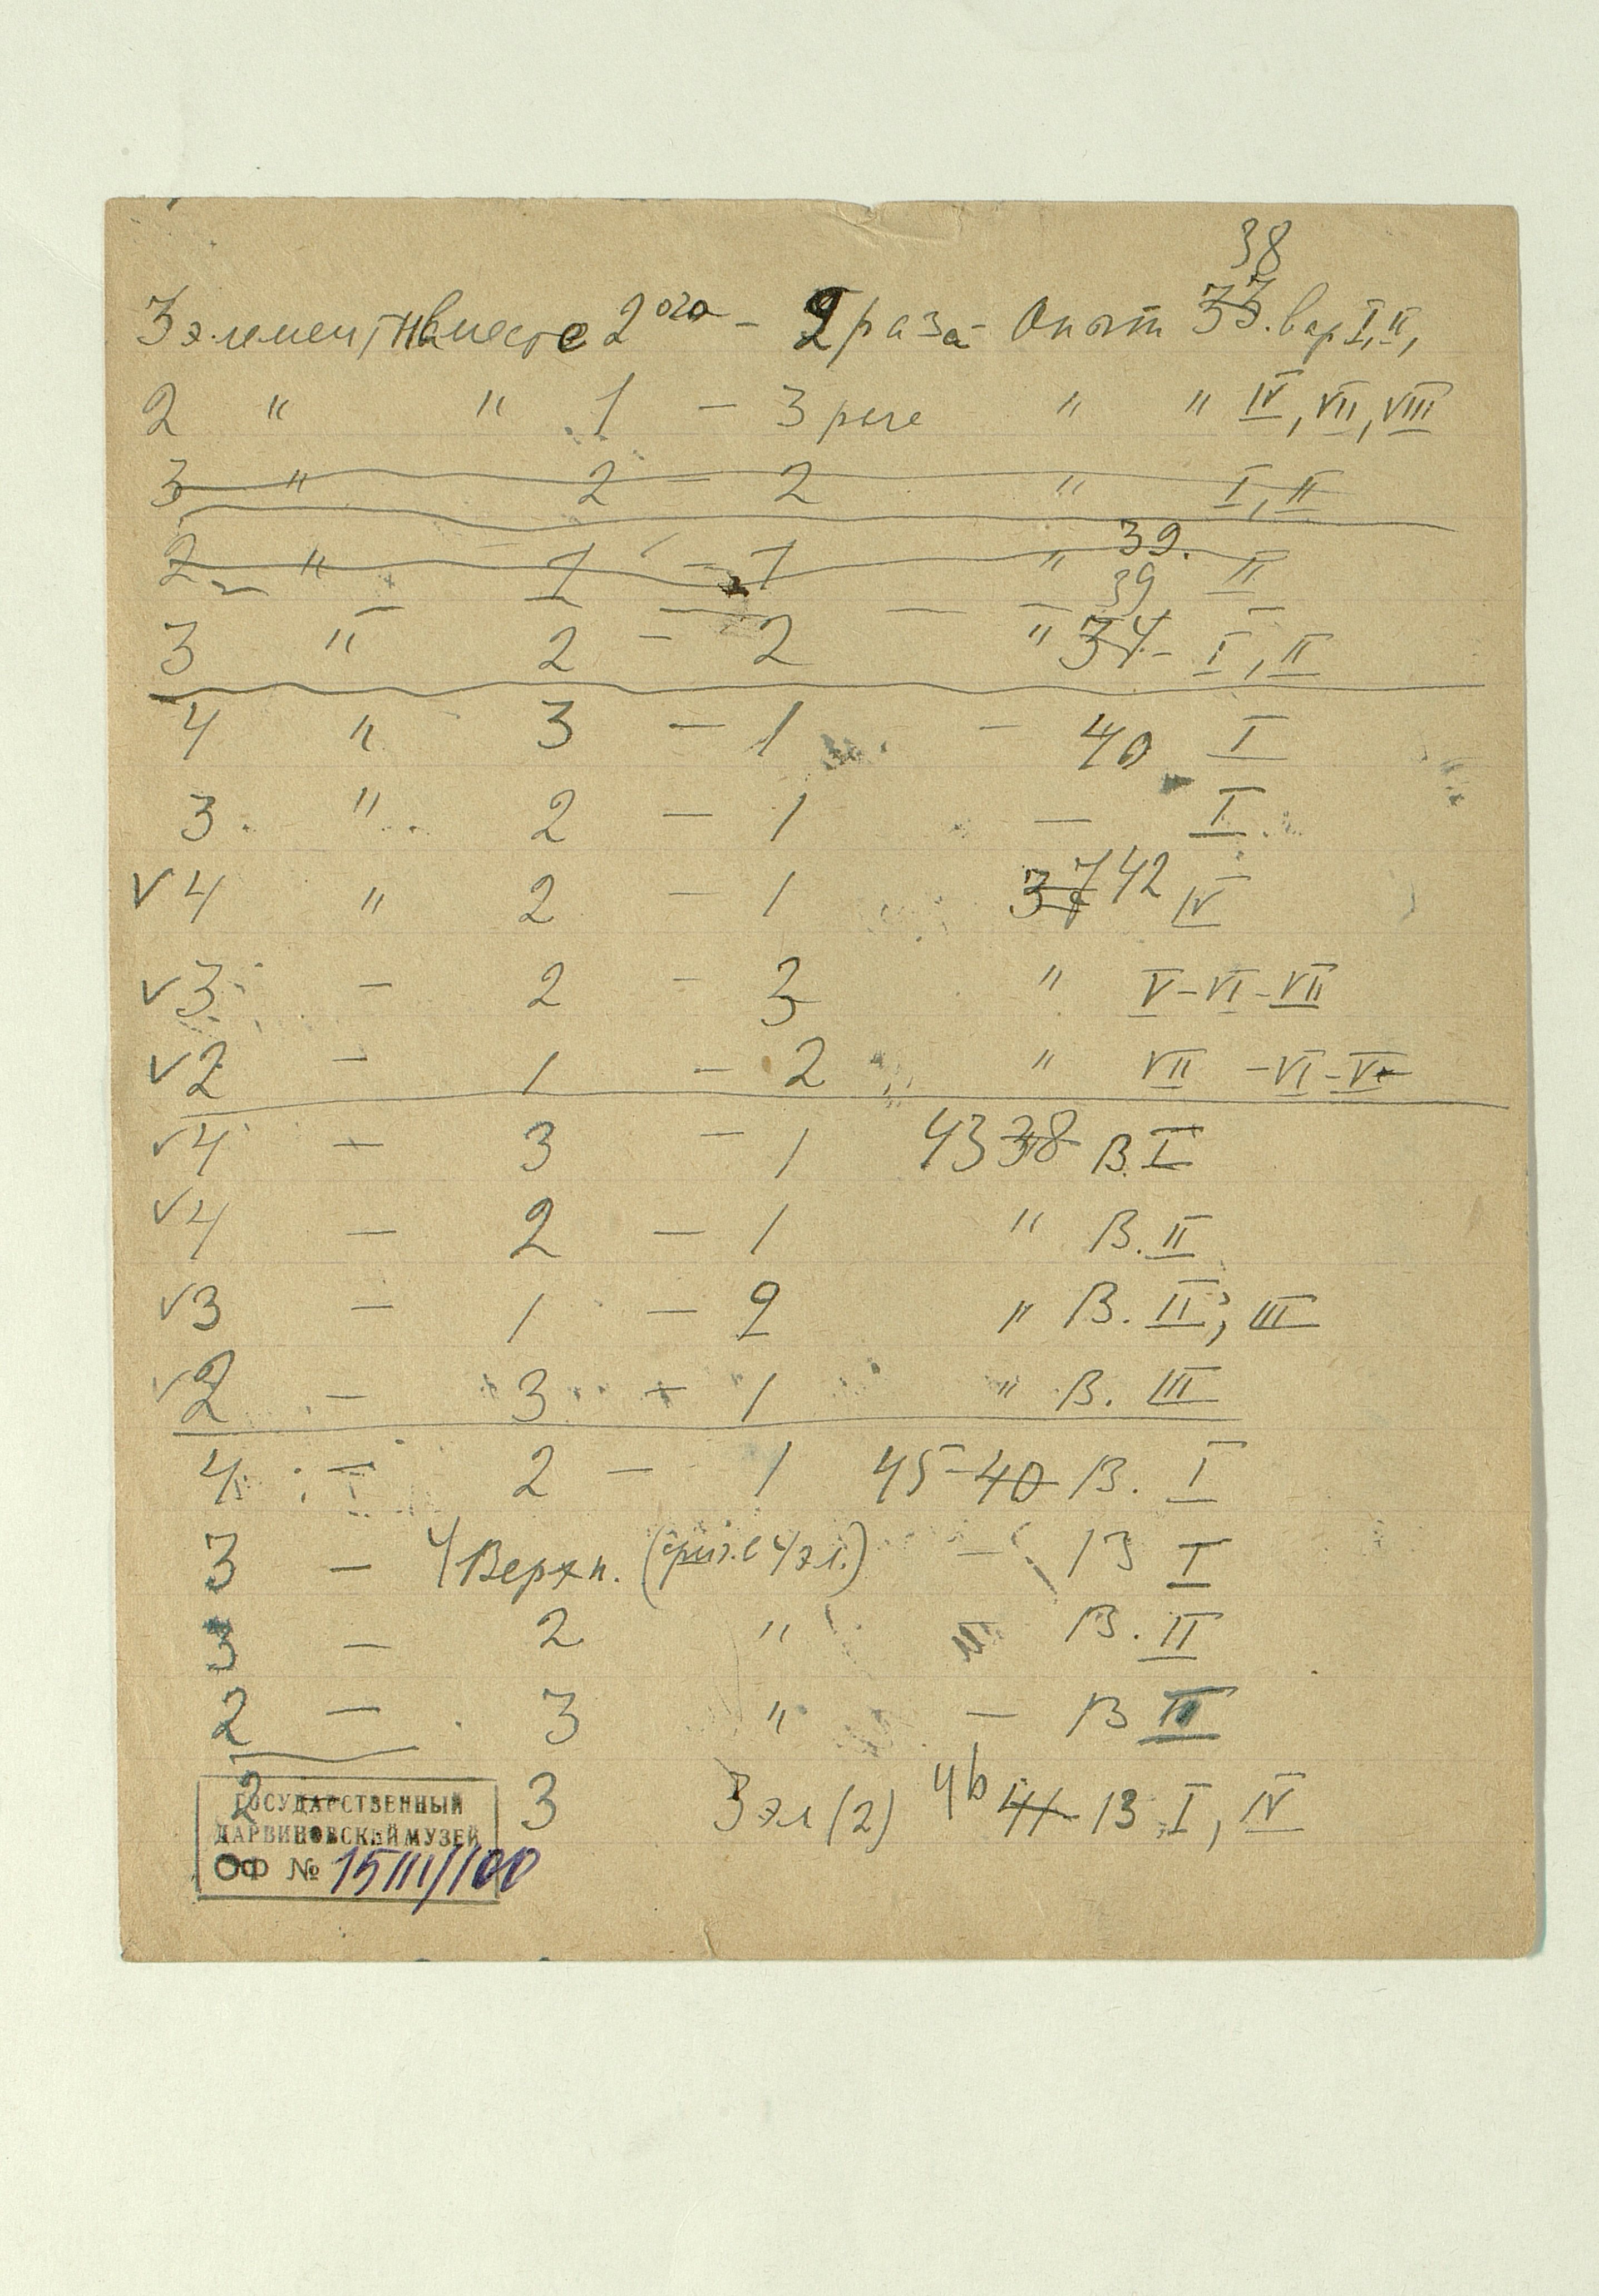 38
3 элемент вместо 2ого - 2 раза - Опыт 33. вар I, II,
2 " " 1 - 3 раза " " IV, VII, VIII
3 " 2 - 2 " I, II
39.
2 " 1 - 1 " II
39
3 " 2 - 2 " 34 - I, II
4 " 3 - 1 - 40 I
3. " 2 - 1 - I
√ 4 " 2 - 1 37 42 IV
√ 3 - 2 - 3 " V - VI - VII
√ 2 - 1 - 2 " VII - VI - V
√ 4 - 3 - 1 43 38 В. I
√ 4 - 2 - 1 " В. II
√ 3 - 1 - 2 " В. II, III
√ 2 - 3 - 1 " В. III
4 - 2 - 1 45 - 40 В. I
3 - 4 Верхн. ( с 4 эл.) - В I
3 - 2 " " В. II
2 - 3 " - В III
2 3 3 эл (2) 46 41 В I, IV
ГОСУДАРСТВЕННЫЙ
ДАРВИНОВСКИЙ МУЗЕЙ
ОФ № 15111/100